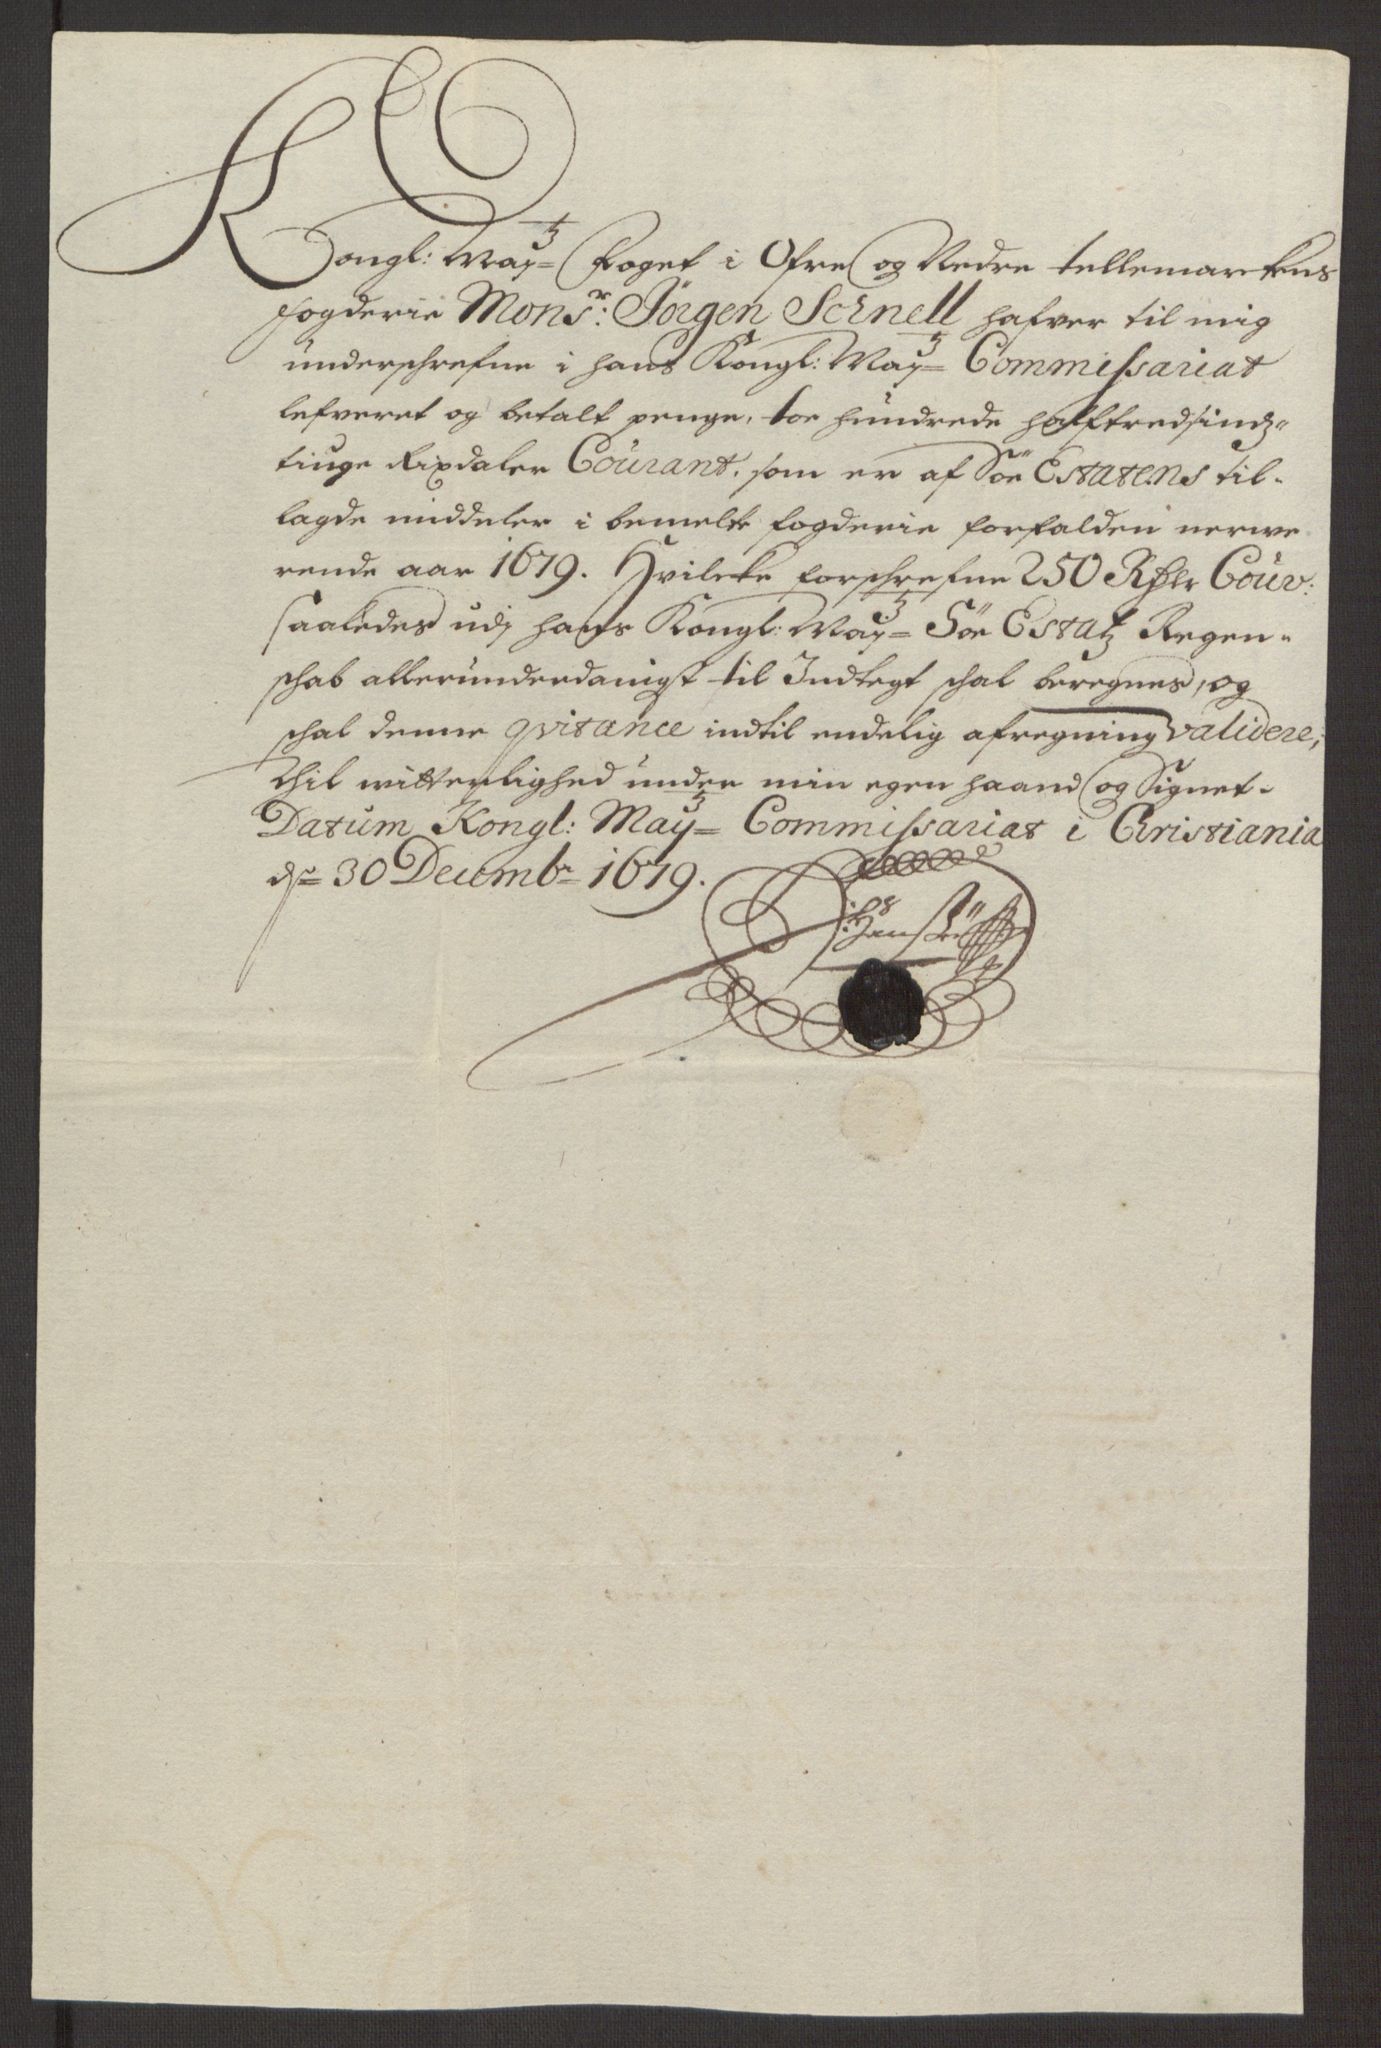 Kongl: May:tz Foget i Ofre og Nedre tellemarckens
fogderie Monsr: Jörgen Schnell hafver til mig
underschrefne i hans Kongl: May:tz Commissariat
lefveret og betalt penge, toe hundrede halftredsindz-
tiuge Rixdaler Courant. som er af Söe Estatens til-
lagde middeler i bemelte fogderie forfalden nerwe
rende aar 1679. Hvilcke forschrefne 250 Rdlr Cour:
saaledes udj hans Kongl: May:tz Söe Estatz Regen-
schab allerunderdanigst til Indtegt schal beregnes, og
schal denne qvitance indtil endelig afregning validere,
Thil witterlighed under min egen haand og Signet.
Datum Kongl: May:tz Commissariat i Christiania
dn 30 Decembr 1679.
Hans